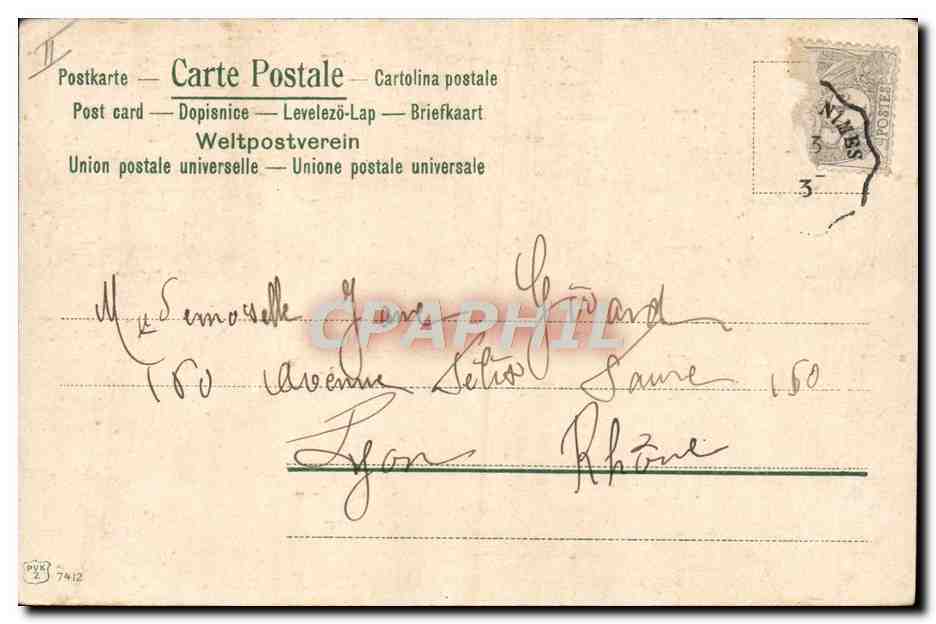 II
Postkarte — Carte Postale — Cartolina postale
Post card — Dopisnice — Levelezö-Lap — Briefkaart
Weltpostverein
Union postale universelle — Unione postale universale
POSTES
NIMES
3
3
Mademoiselle Jane Girard
CPAPHIL
160 Avenue Félix Faure 160
Lyon Rhône
PVK
Z
7412